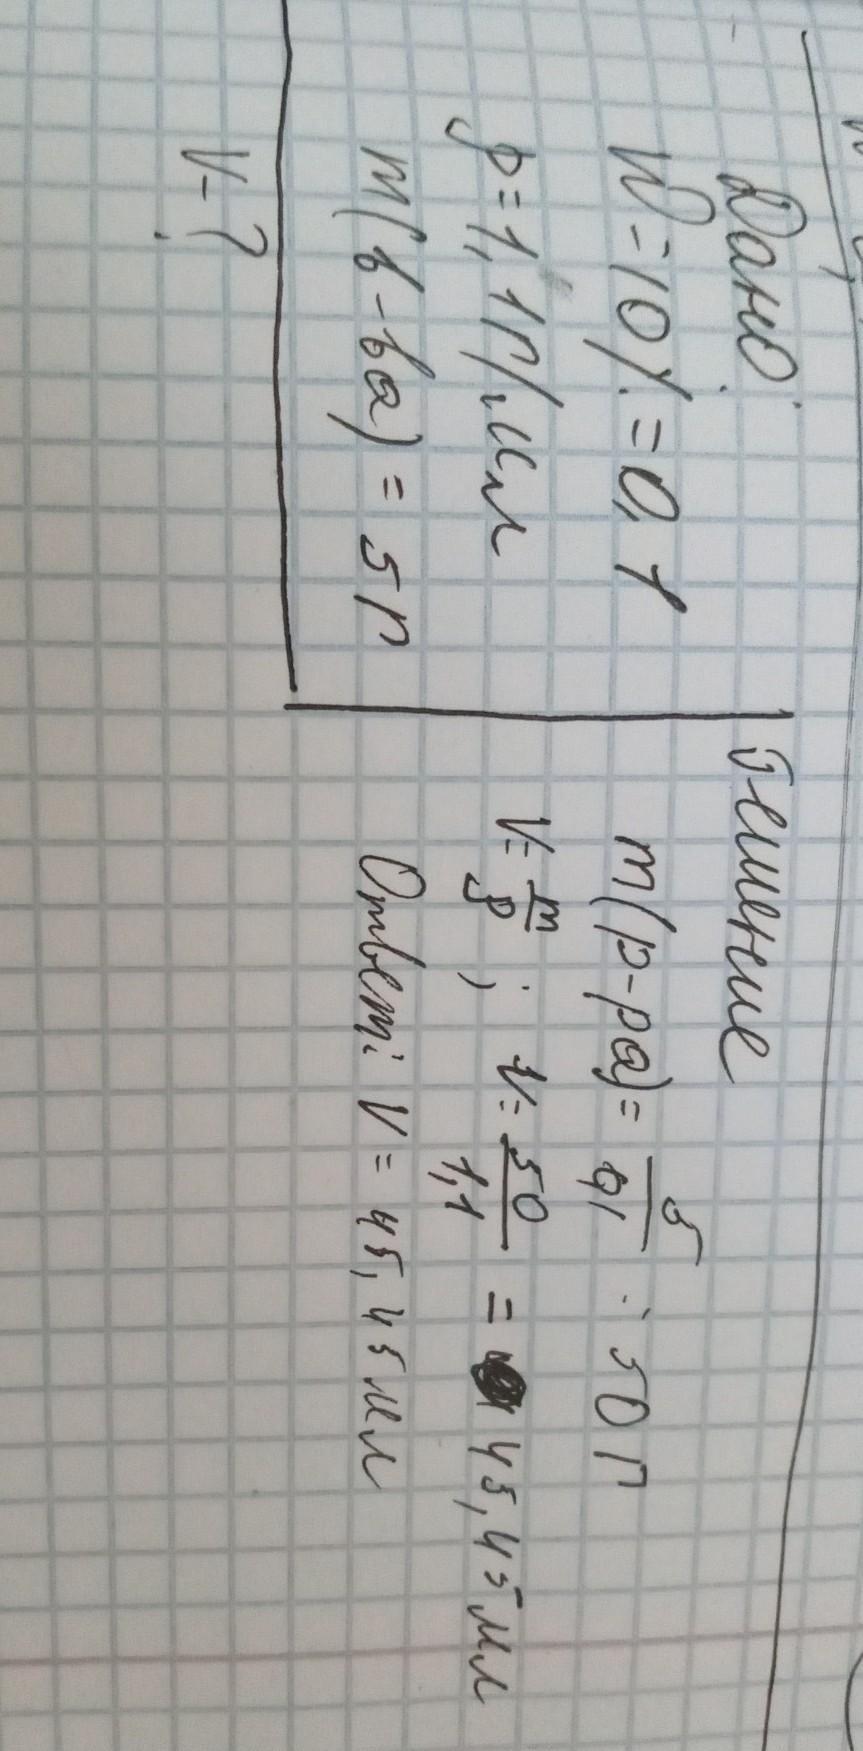 Дано:
W=10%=0,1
ρ=1,1г/мл
m(в-ва)=5г
V-?
Решение
m(р-ра)= 5/0,1 = 50г
V= m/ρ ; V= 50/1,1 = 45,45мл
Ответ: V=45,45мл